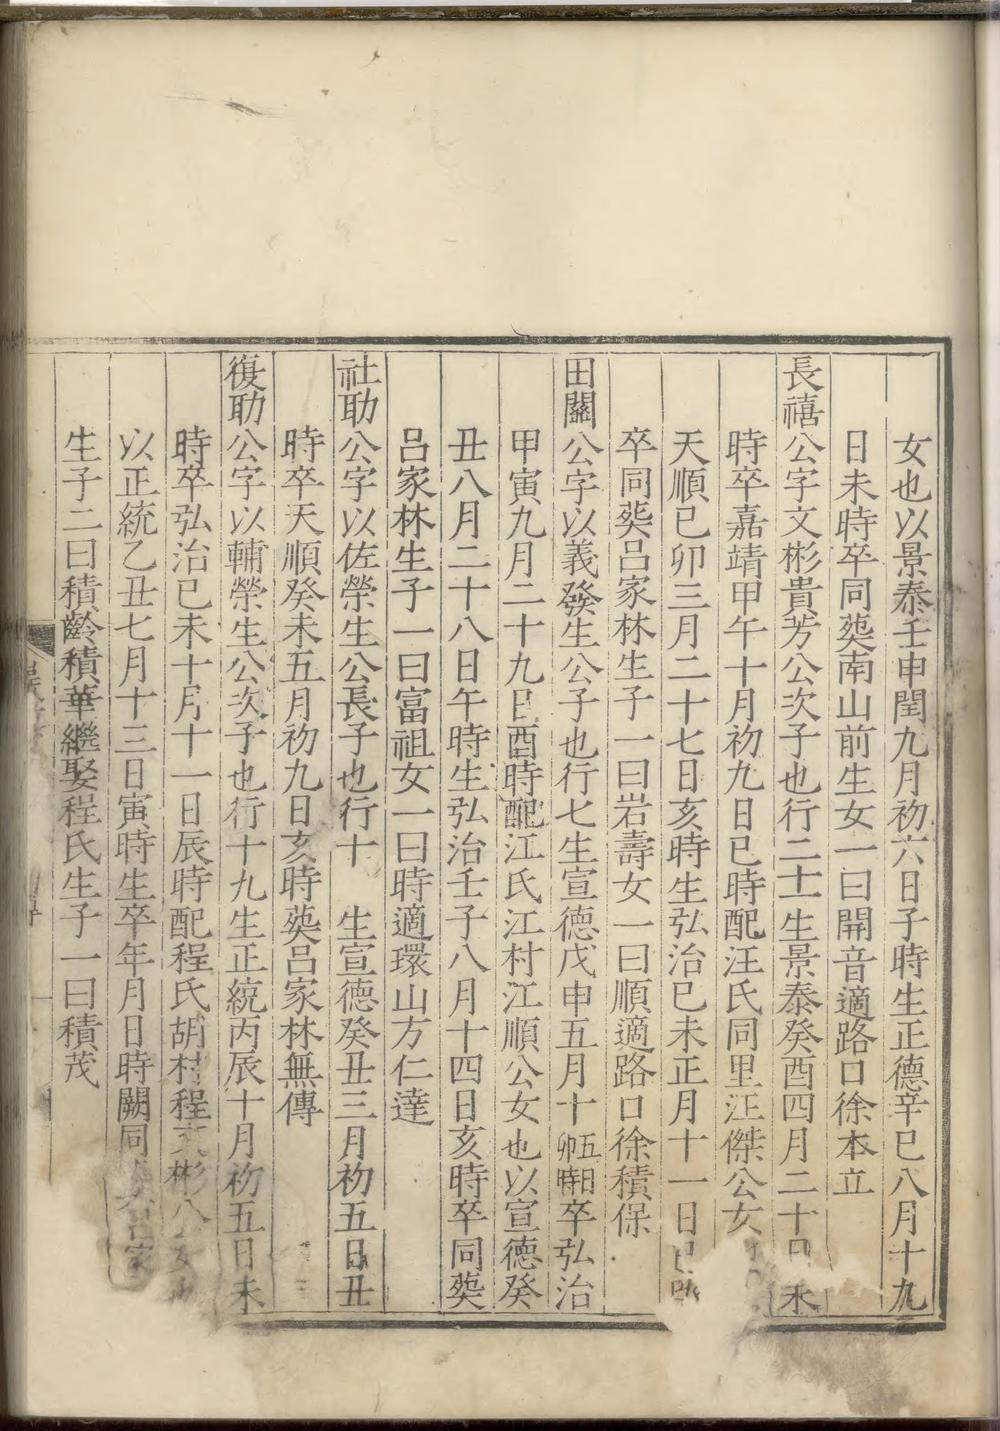 女也以景泰壬申閏九月初六日子時生正德辛巳八月十九
日未時卒同葬南山前生女一曰開音適路口徐本立
長禧公字文彬貴芳公次子也行二十一生景泰癸酉四月二十日未
時卒嘉靖甲午十月初九日巳時配汪氏同里汪傑公女
天順己卯三月二十七日亥時生弘治己未正月十一日巳時
卒同葬呂家林生子一曰岩壽女一曰順適路口徐積保
田關公字以義發生公子也行七生宣德戊申五月十五日卯時卒弘治
甲寅九月二十九日酉時配江氏江村江順公女也以宣德癸
丑八月二十八日午時生弘治壬子八月十四日亥時卒同葬
呂家林生子一曰富祖女一曰時適環山方仁達
社助公字以佐榮生公長子也行十 生宣德癸丑三月初五日丑
時卒天順癸未五月初九日亥時葬呂家林無傳
復助公字以輔榮生公次子也行十九生正統丙辰十月初五日未
時卒弘治己未十月十一日辰時配程氏胡村程文彬公女也
以正統乙丑七月十三日寅時生卒年月日時闕同葬呂家
生子二曰積齡積華繼娶程氏生子一曰積茂